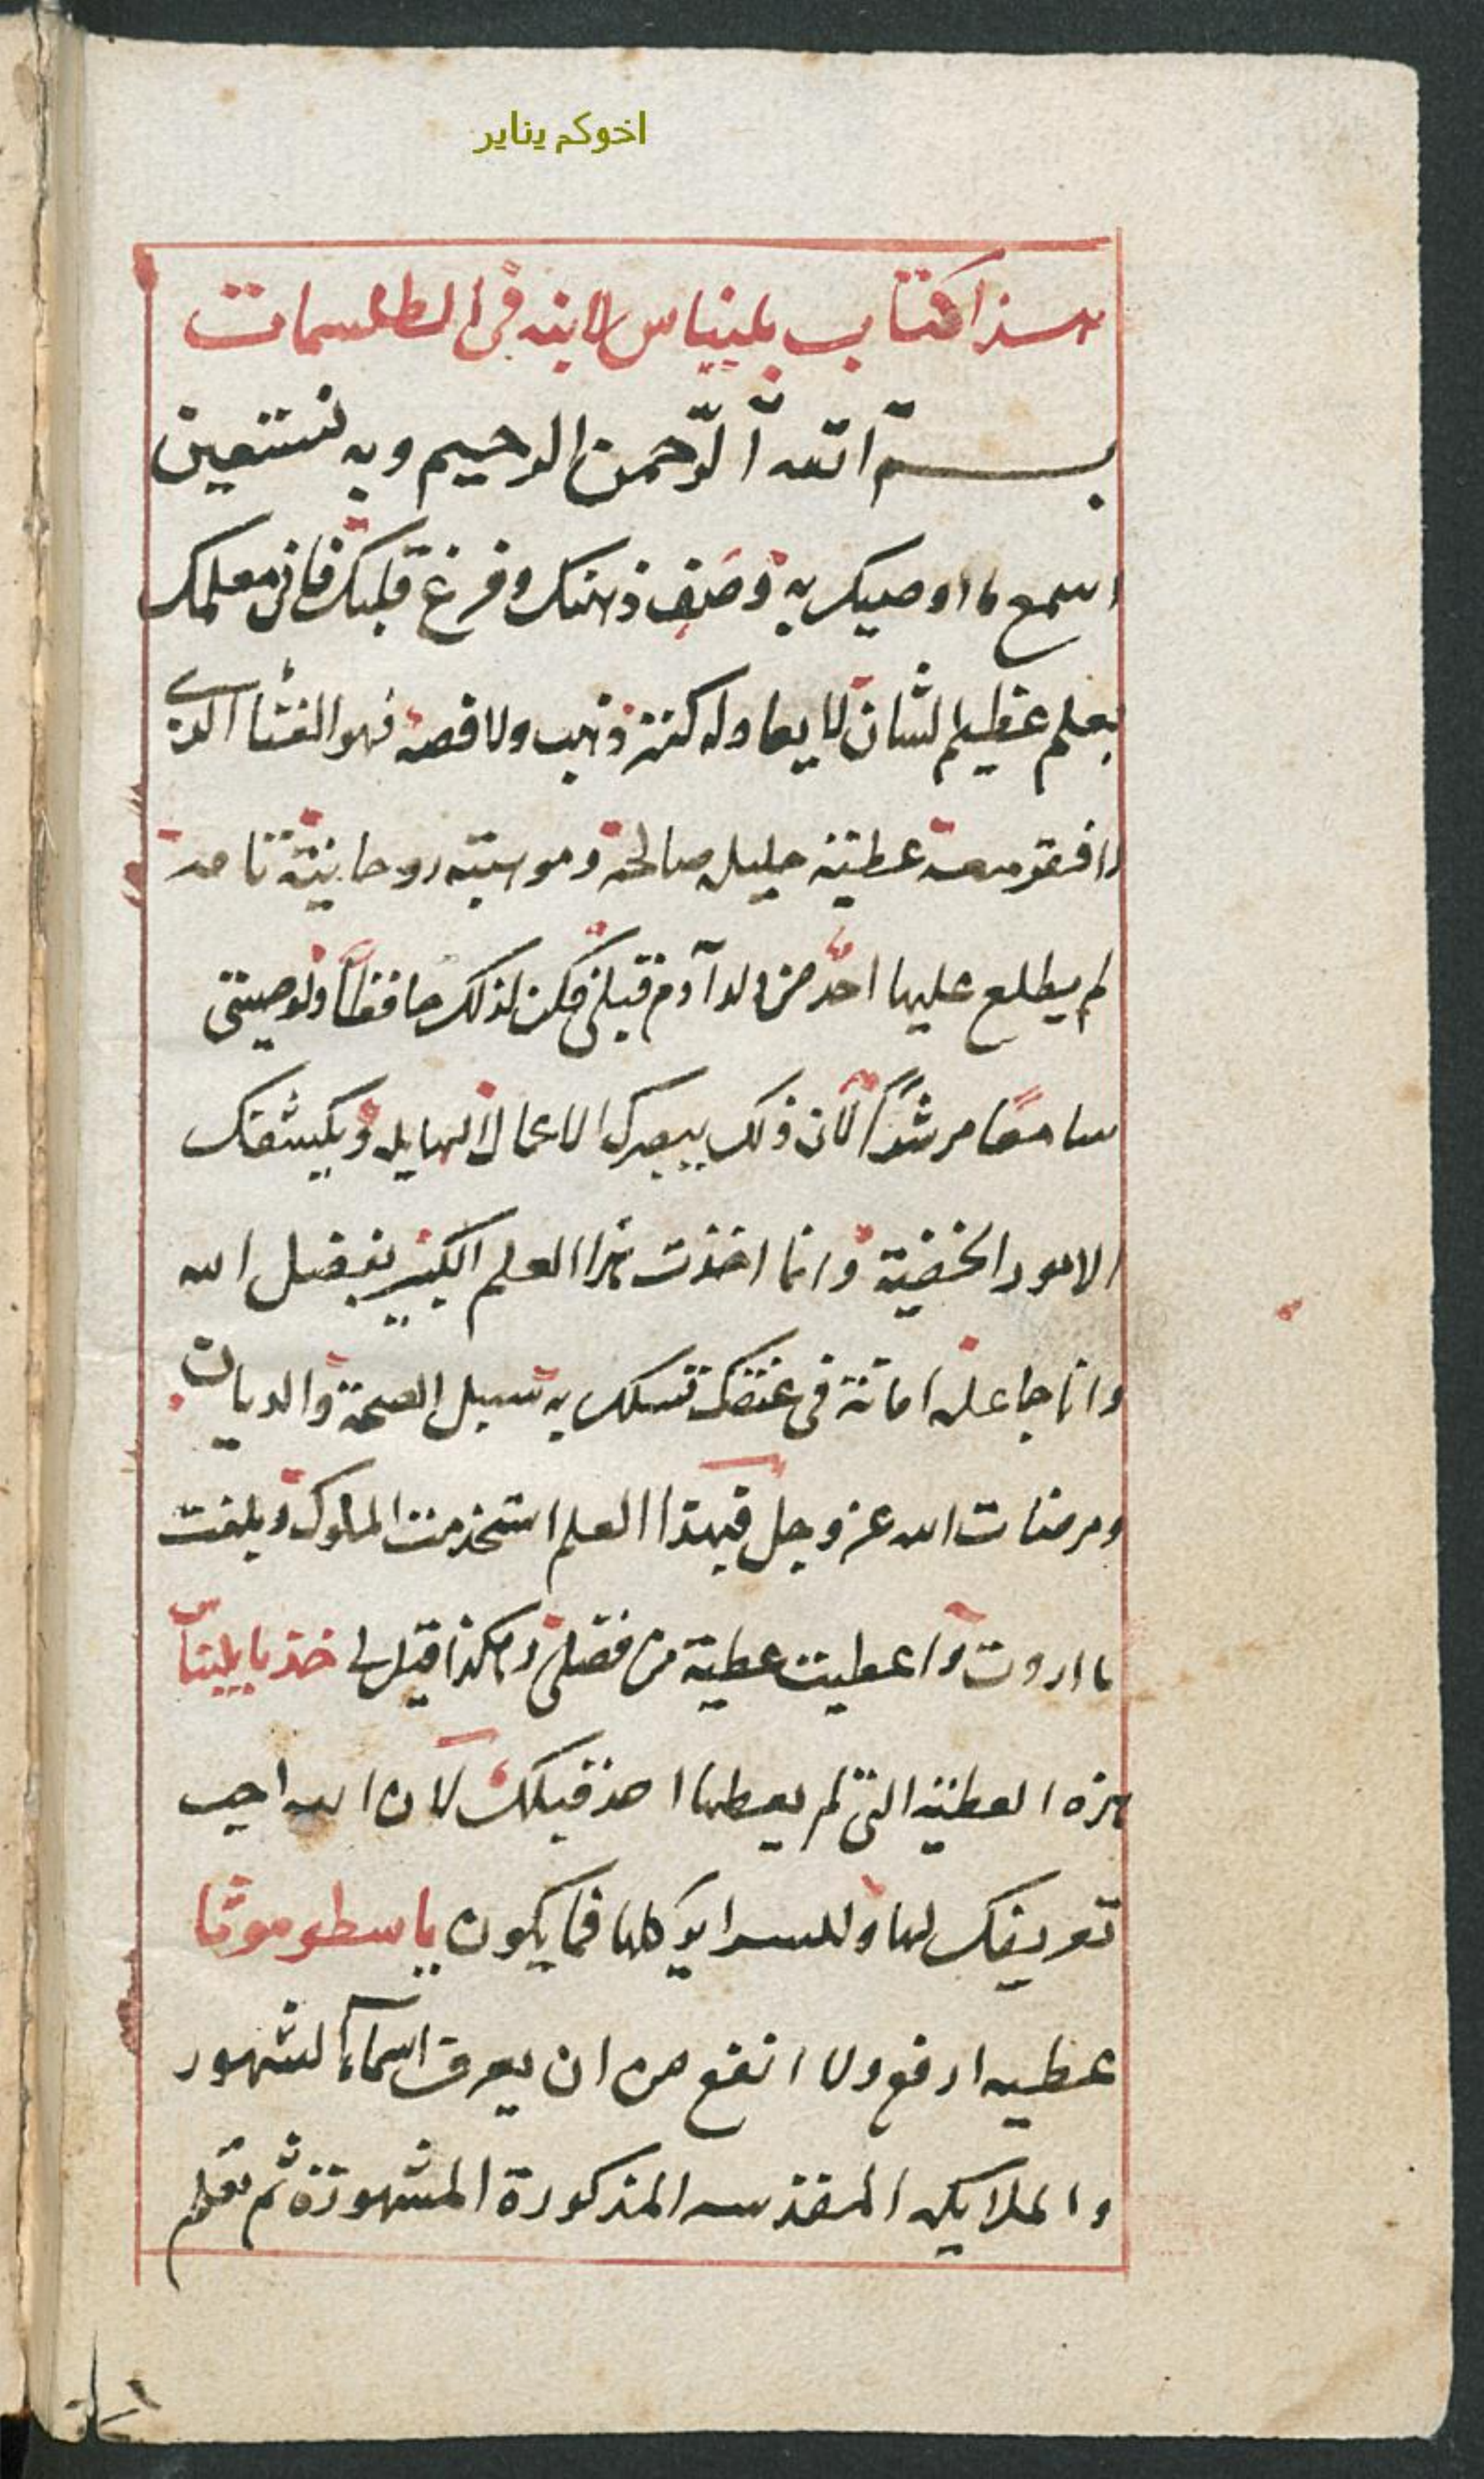 اخوكم يناير
هذا كتاب بليناس لابنه في الطلسمات
بسم الله الرحمن الرحيم وبه نستعين
اسمع ما اوصيك به وصف ذهنك وفرغ قلبك فاني معلمك
بعلم عظيم الشان لا يعادله كنز ذهب ولا فضة فهو الغنا الذي
لا فقر معه عطية جليله صالحة وموهبته روحانية تامة
لم يطلع عليها احد من ولد آدم قبلي فكن لذلك حافظاً ولوصيتي
سامعا مرشداً لان ذلك يبصرك الاعمال الهايله ويكشف لك
الامور الخفية وانما اخذت هذا العلم الكبير بفضل الله
وانا جاعله امانة في عنقك تسلك به سبيل الصحة والديان
ومرضات الله عز وجل فبهذا العلم استخدمت الملوك وبلغت
ما اردت وا عطيت عطية من فضلى وهكذا قيل لي خذ يا بليناس
هذه العطية التي لم يعطها احد قبلك لان الله احب
تعريفك لها وللسراير كلها فما يكون يا سطوموثا
عطيه ارفع ولا انفع من ان يعرف اسماء الشهور
والملايكه المقدسه المذكورة المشهورة ثم تعلم